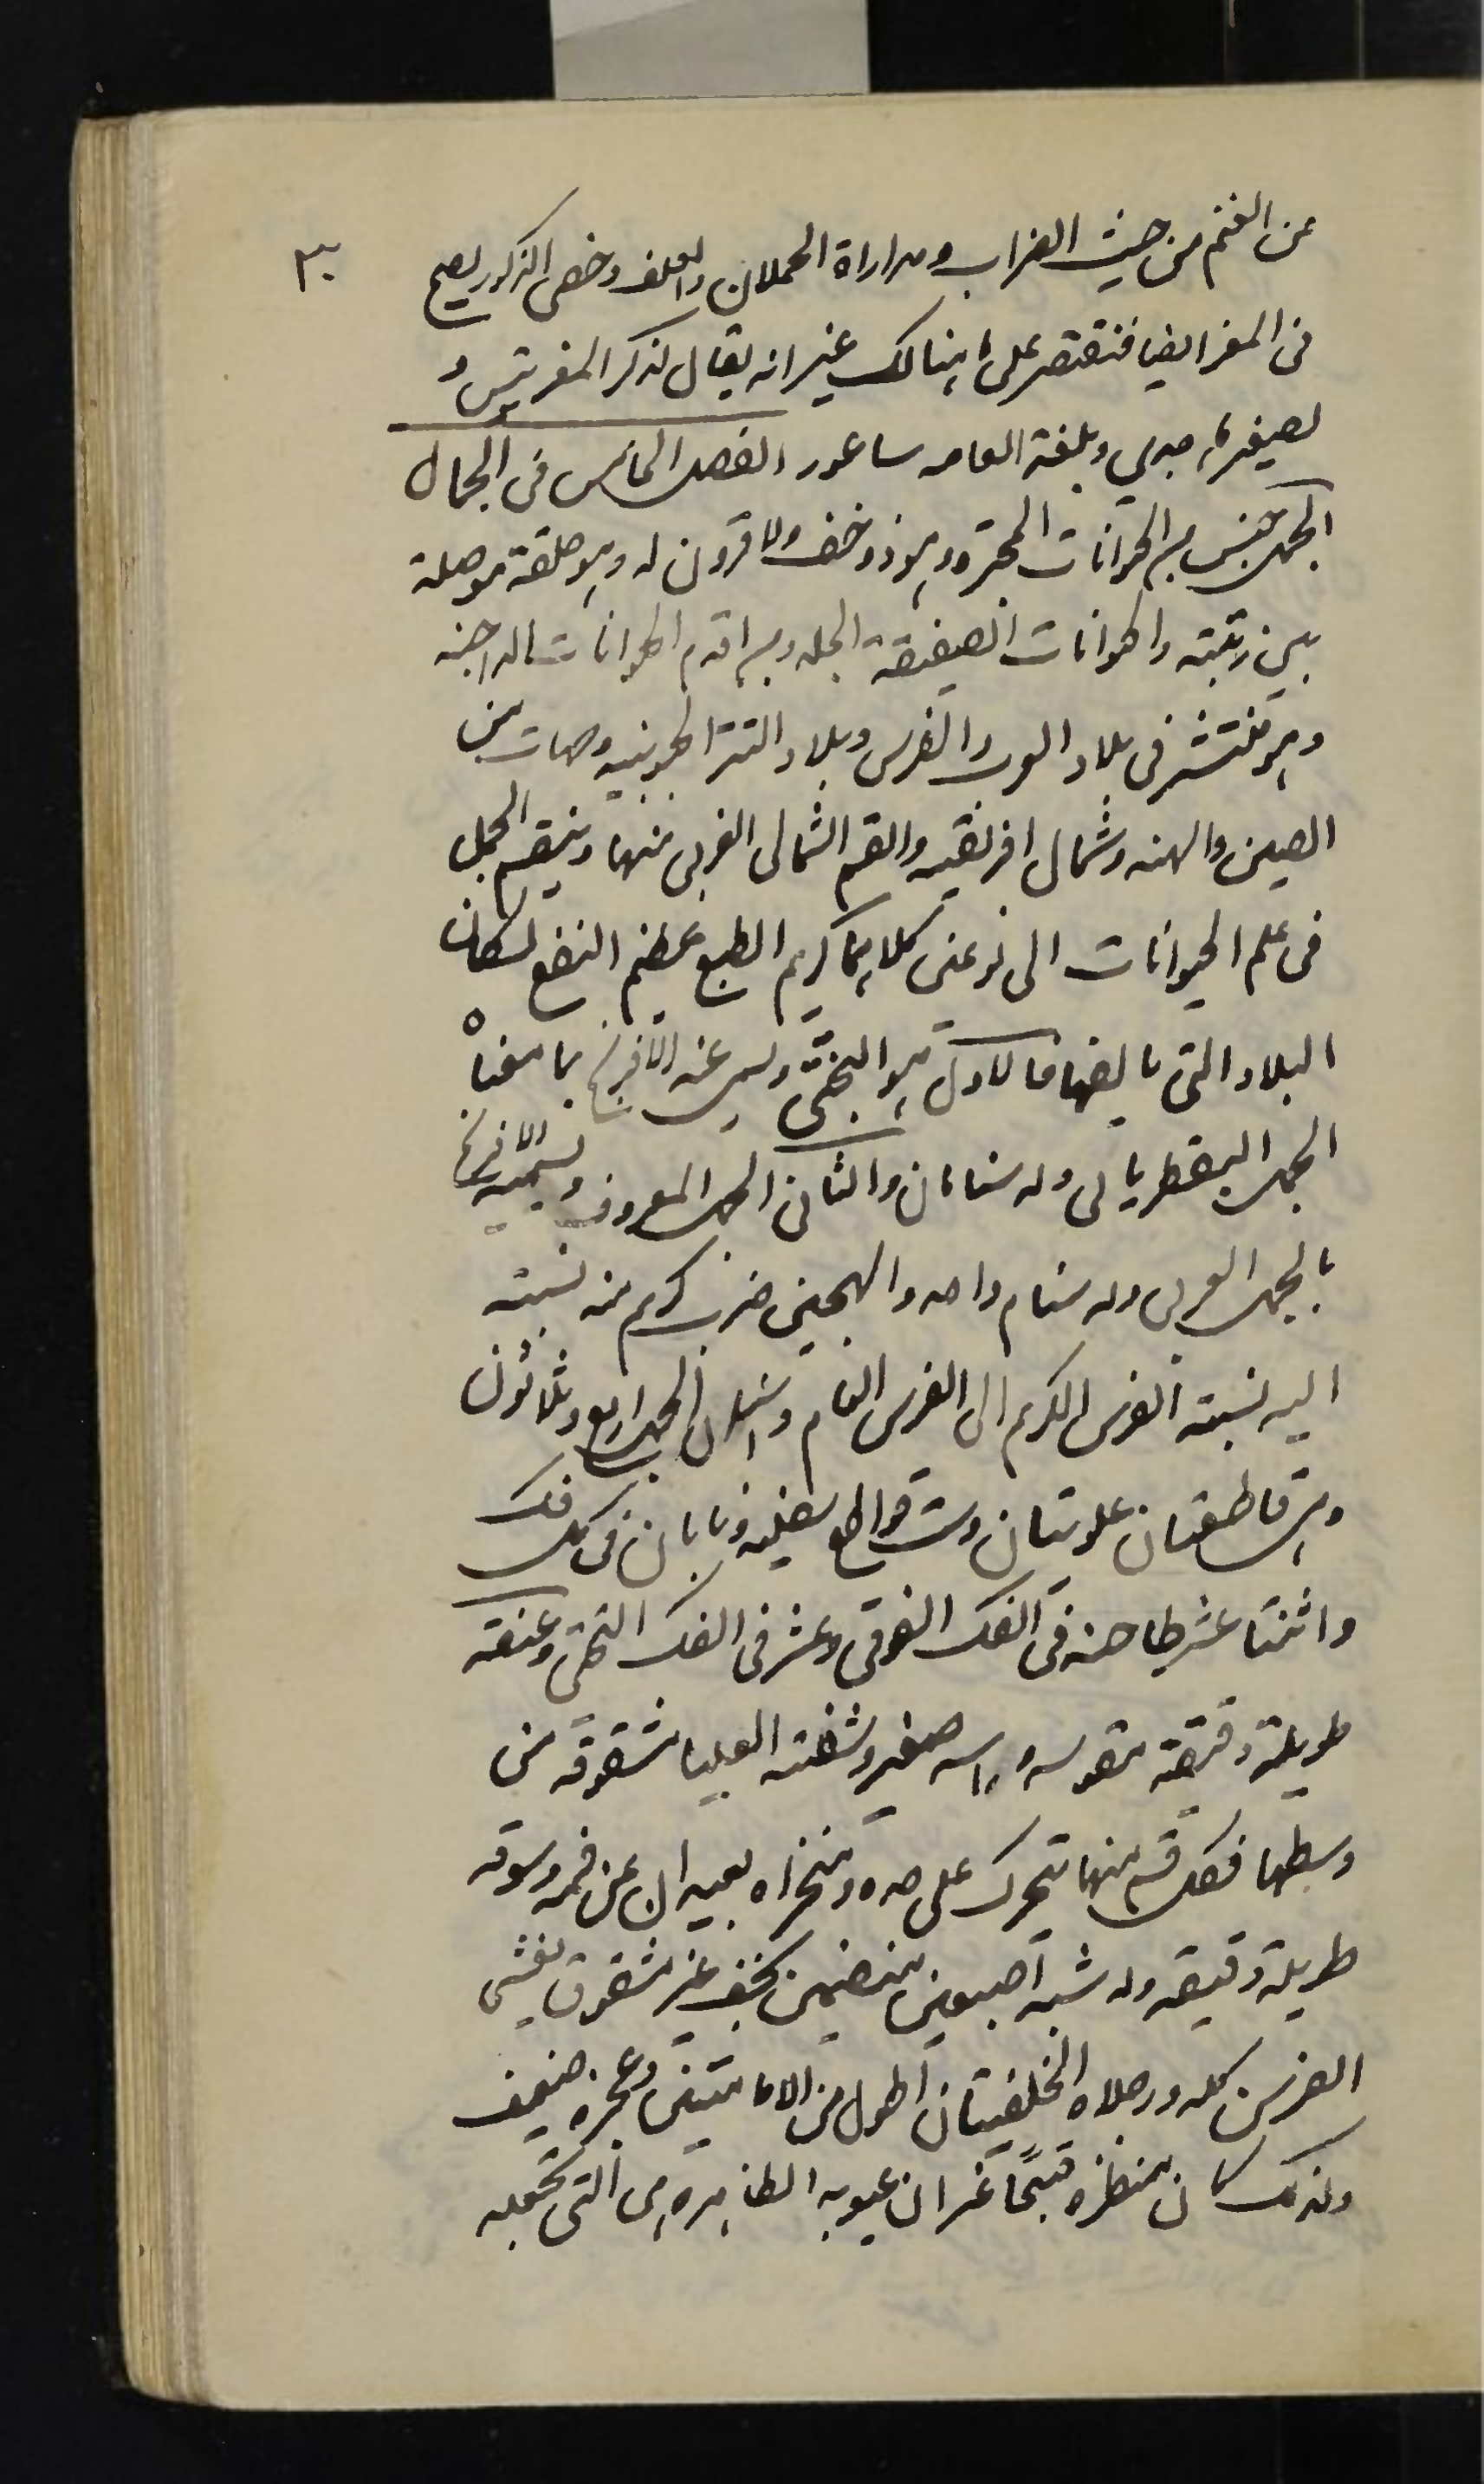 ٣٠
عن الغنم من حيث الضراب ومداراة الحملان والعلف وخصى الذكور يصح
فى المعز ايضا فنقتصر على ما هنالك غير انه يقال لذكر المعز تيس و
لصغيرها جدي وبلغة العامه ساعور الفصل الخامس فى الجمال
الجمل جنس من الحيوانات المجتره وهو ذو خف ولا قرون له وهو حلقة موصلة
بين رتبته والحيوانات الصفيقة الجلد وهو اقدم الحيوانات الداجنه
وهو منتشر فى بلاد العرب والفرس وبلاد التتر الجنوبيه وجهات من
الصين والهند وشمال افريقيه والقسم الشمالى الغربى منها وينقسم الجمل
فى علم الحيوانات الى نوعين كلاهما كريم الطبع عظيم النفع لسكان
البلاد التى يالفها فالاول هو البختى ويسمى عند الافرنج بما معناه
الجمل البقطريانى وله سنامان والثانى الجمل المعروف ويسميه الافرنج
بالجمل العربى وله سنام واحد والهجين ضرب كريم منه نسبته
اليه نسبة الفرس الكريم الى الفرس العام واسنان الجمل اربع وثلاثون
وهى قاطعتان علويتان وست قواطع سفليه ونابان فى كل فك
واثنتا عشر طاحنه فى الفك الفوقى وعشر فى الفك التحتى وعنقه
طويلة دقيقة مقوسه وراسه صغير وشفته العليا مشقوقه من
وسطها فكل قسم منها تتحرك على حده ومنخراه بعيدان عن فمه وسوقه
طويلة دقيقه وله شبه اصبعين منضمين بخف غير مشقوق يغشى
الفرسن كله ورجلاه الخلفيتان اطول من الاماميتين وعجزه ضعيف
ولذلك كان منظره قبيحًا غير ان عيوبه الظاهره هى التى تجعله